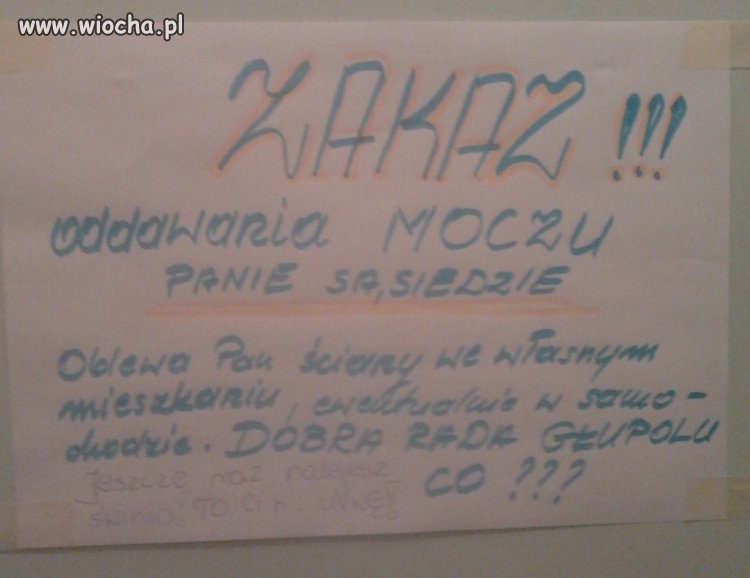 www.wiocha.pl
ZAKAZ !!!
oddawania MOCZU
PANIE SĄSIEDZIE
Oblewa Pan ściany we własnym
mieszkaniu, ewentualnie w samo-
chodzie. DOBRA RADA GŁUPOLU
CO ???
jeszcze raz nalejesz
TO Ci